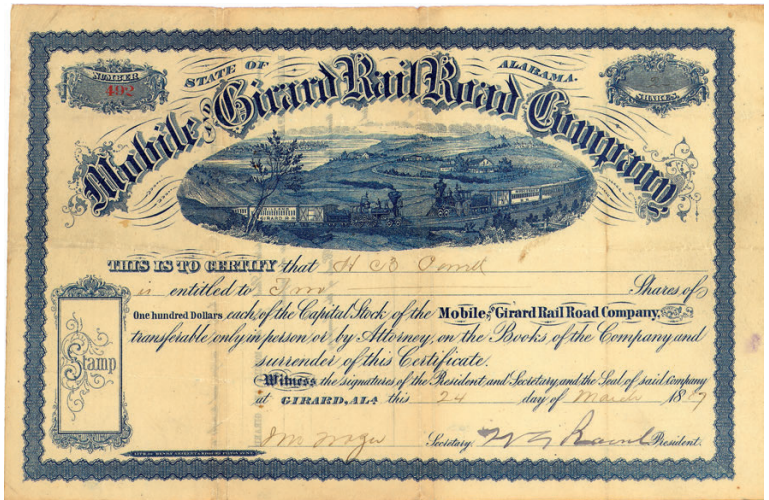 NUMBER
492
STATE OF ALABAMA.
SHARES
Mobile and Girard Rail Road Company
GIRARD R.R.
THIS IS TO CERTIFY that H
is entitled to
Shares of
One hundred Dollars each of the Capital Stock of the Mobile and Girard Rail Road Company,
transferable only in person or by Attorney, on the Books of the Company and
surrender of this Certificate.
Stamp
Witness the signatures of the President and Secretary, and the Seal of said Company
at GIRARD, ALA this 24 day of March 18
Secretary.
President.